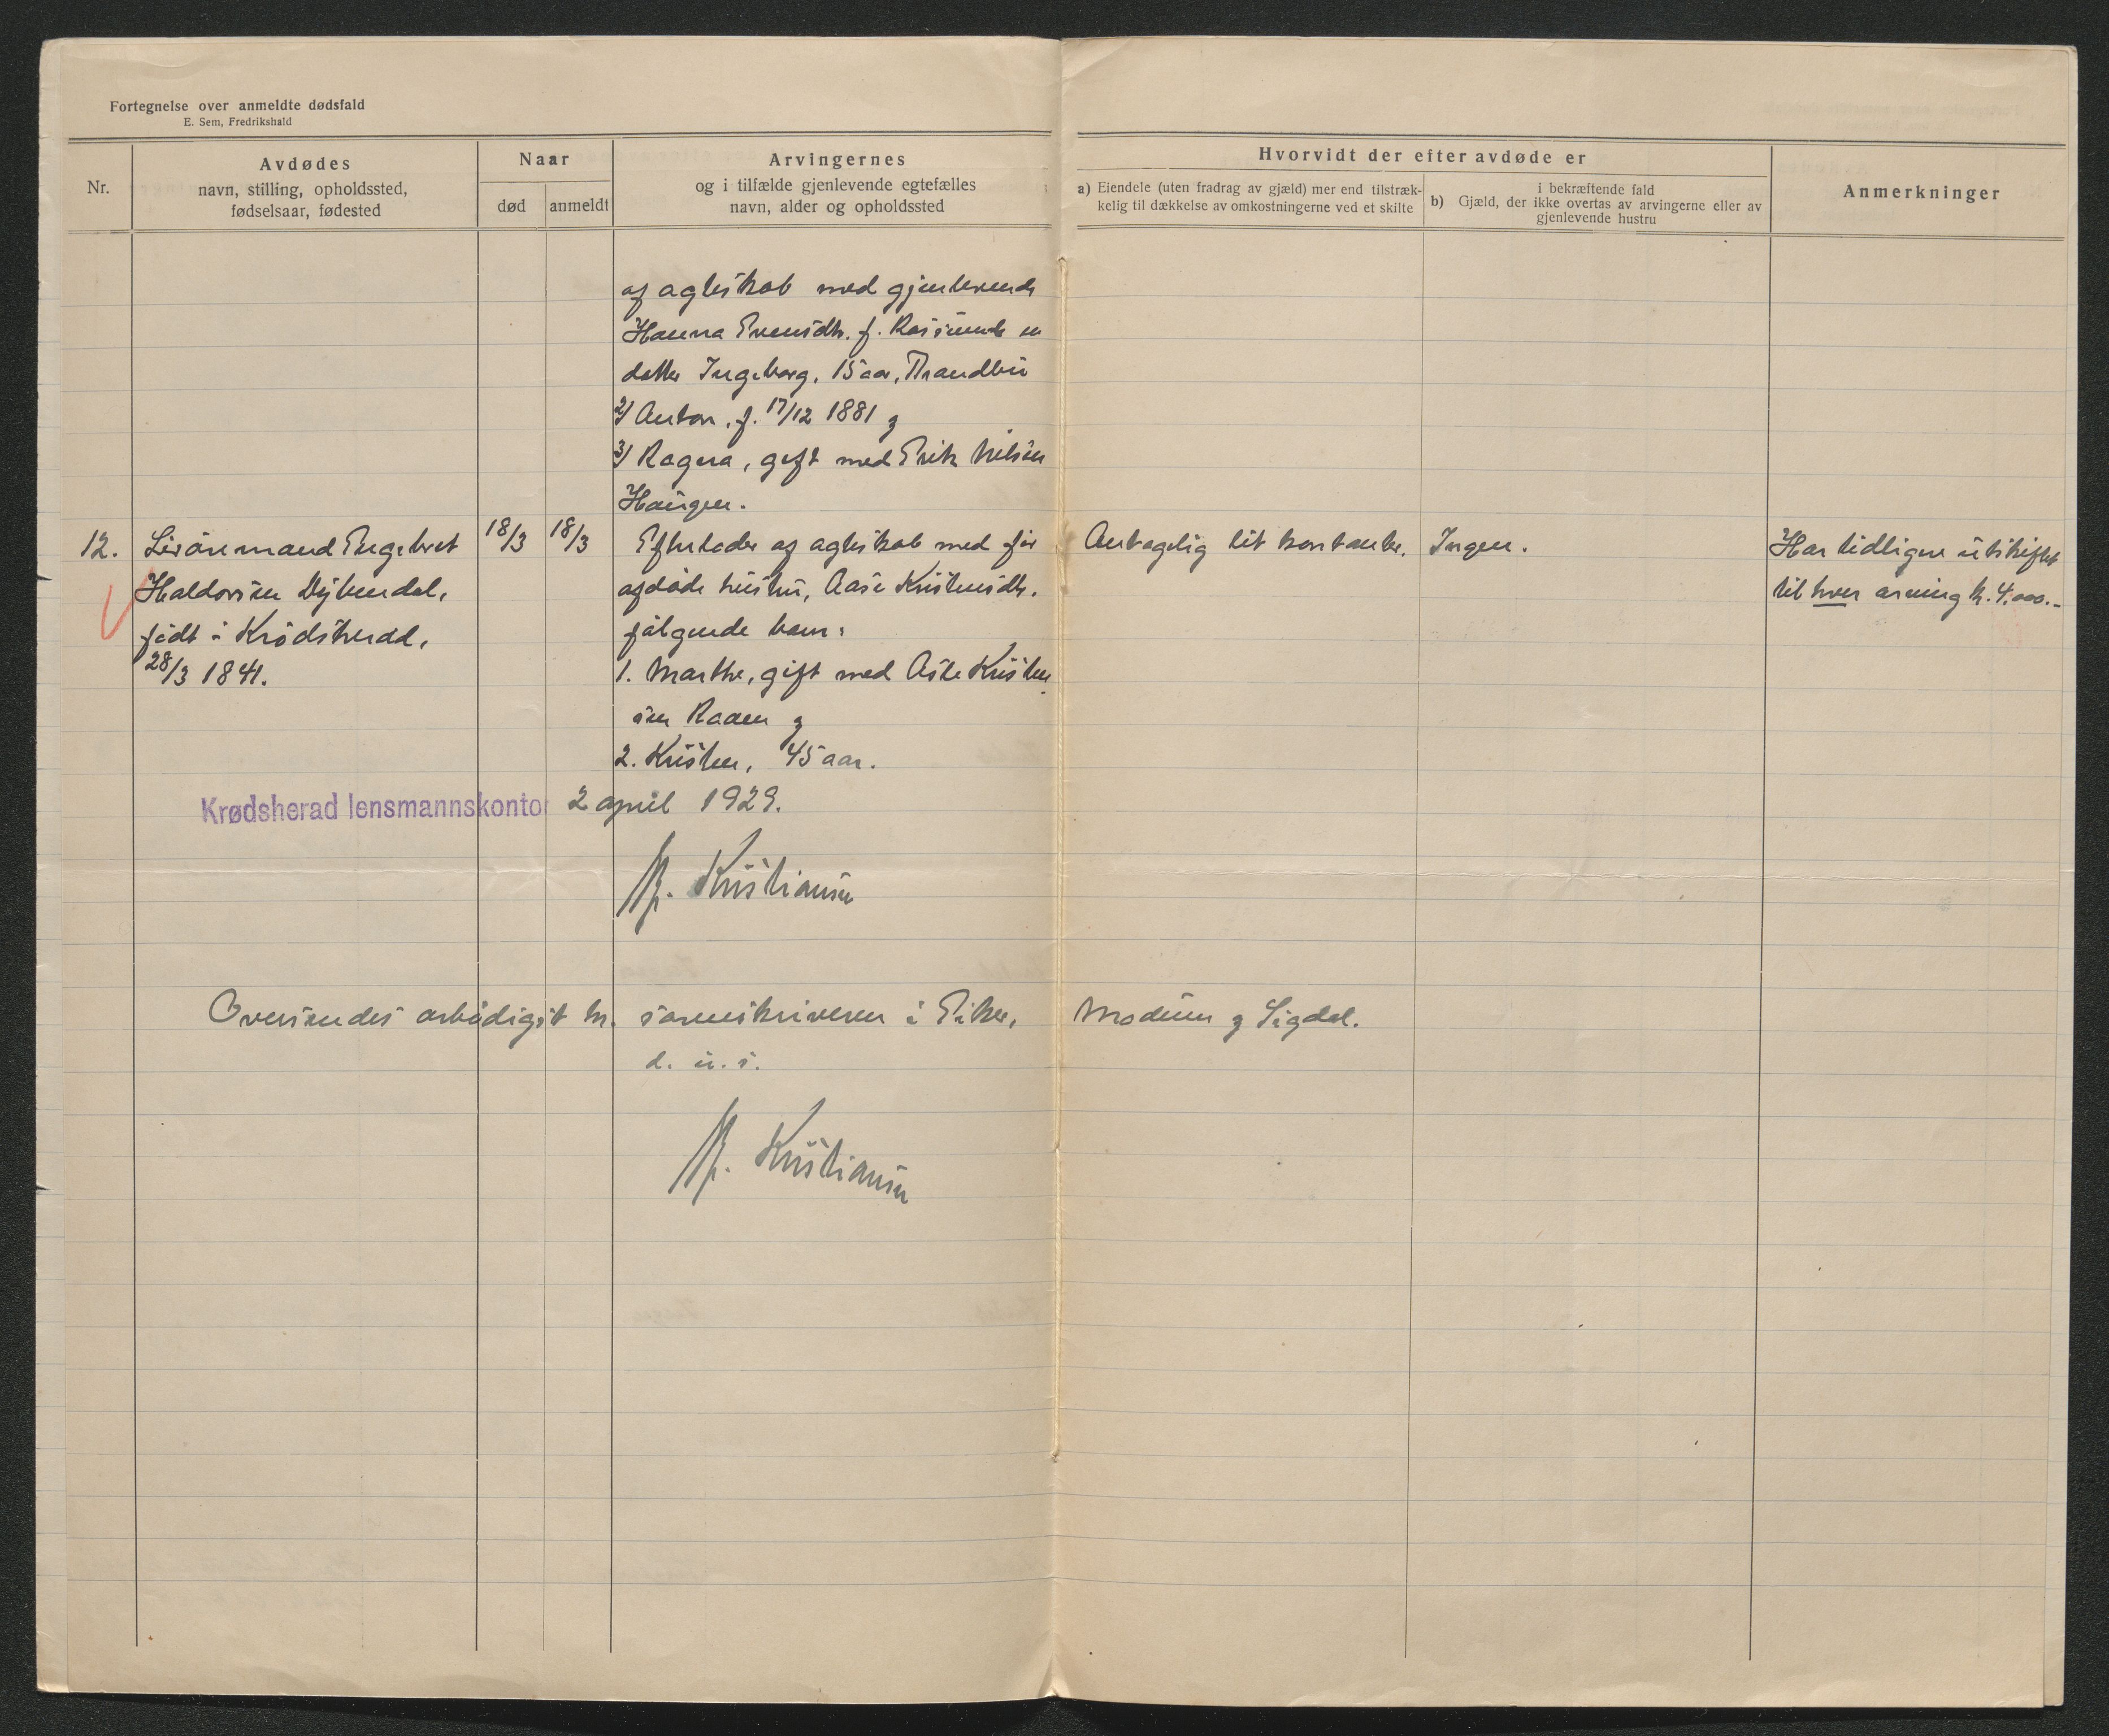 Fortegnelse over anmeldte dødsfald
E. Sem, Fredrikshald
Nr.
Avdødes
navn, stilling, opholdssted,
fødselsaar, fødested
Naar
død
anmeldt
Arvingernes
og i tilfælde gjenlevende egtefælles
navn, alder og opholdssted
Hvorvidt der efter avdøde er
a) Eiendele (uten fradrag av gjæld) mer end tilstræk-
kelig til dækkelse av omkostningerne ved et skifte
b) i bekræftende fald
Gjæld, der ikke overtas av arvingerne eller av
gjenlevende hustru
Anmerkninger
af ægteskab med gjenlevende
Hanna Evensdtr. f. en
datter Ingeborg, 15 aar, Brandbu
2) Anton, f. 17/12 1881 og
3) Ragna, gift med Erik Nilsen
Haugen.
12. Livöremand Engebret 18/3 18/3 Efterlader af ægteskab med før Antagelig litt kontanter. Ingen. Har tidligere utskiftet
Haldorsen Dybendal, afdøde hustru, Aase Kristensdtr. til hver arving kr. 4,000.-
født i Krødsherad, følgende barn:
28/3 1841. 1. Marthe, gift med Asle Kristen
sen Raaen og
2. Kristen, 45 aar.
Krødsherad lensmannskontor 2 april 1929.
Kristiansen
Oversendes ærbødigst hr. sorenskriveren i Eiker, Modum og Sigdal.
d. u. s.
Kristiansen